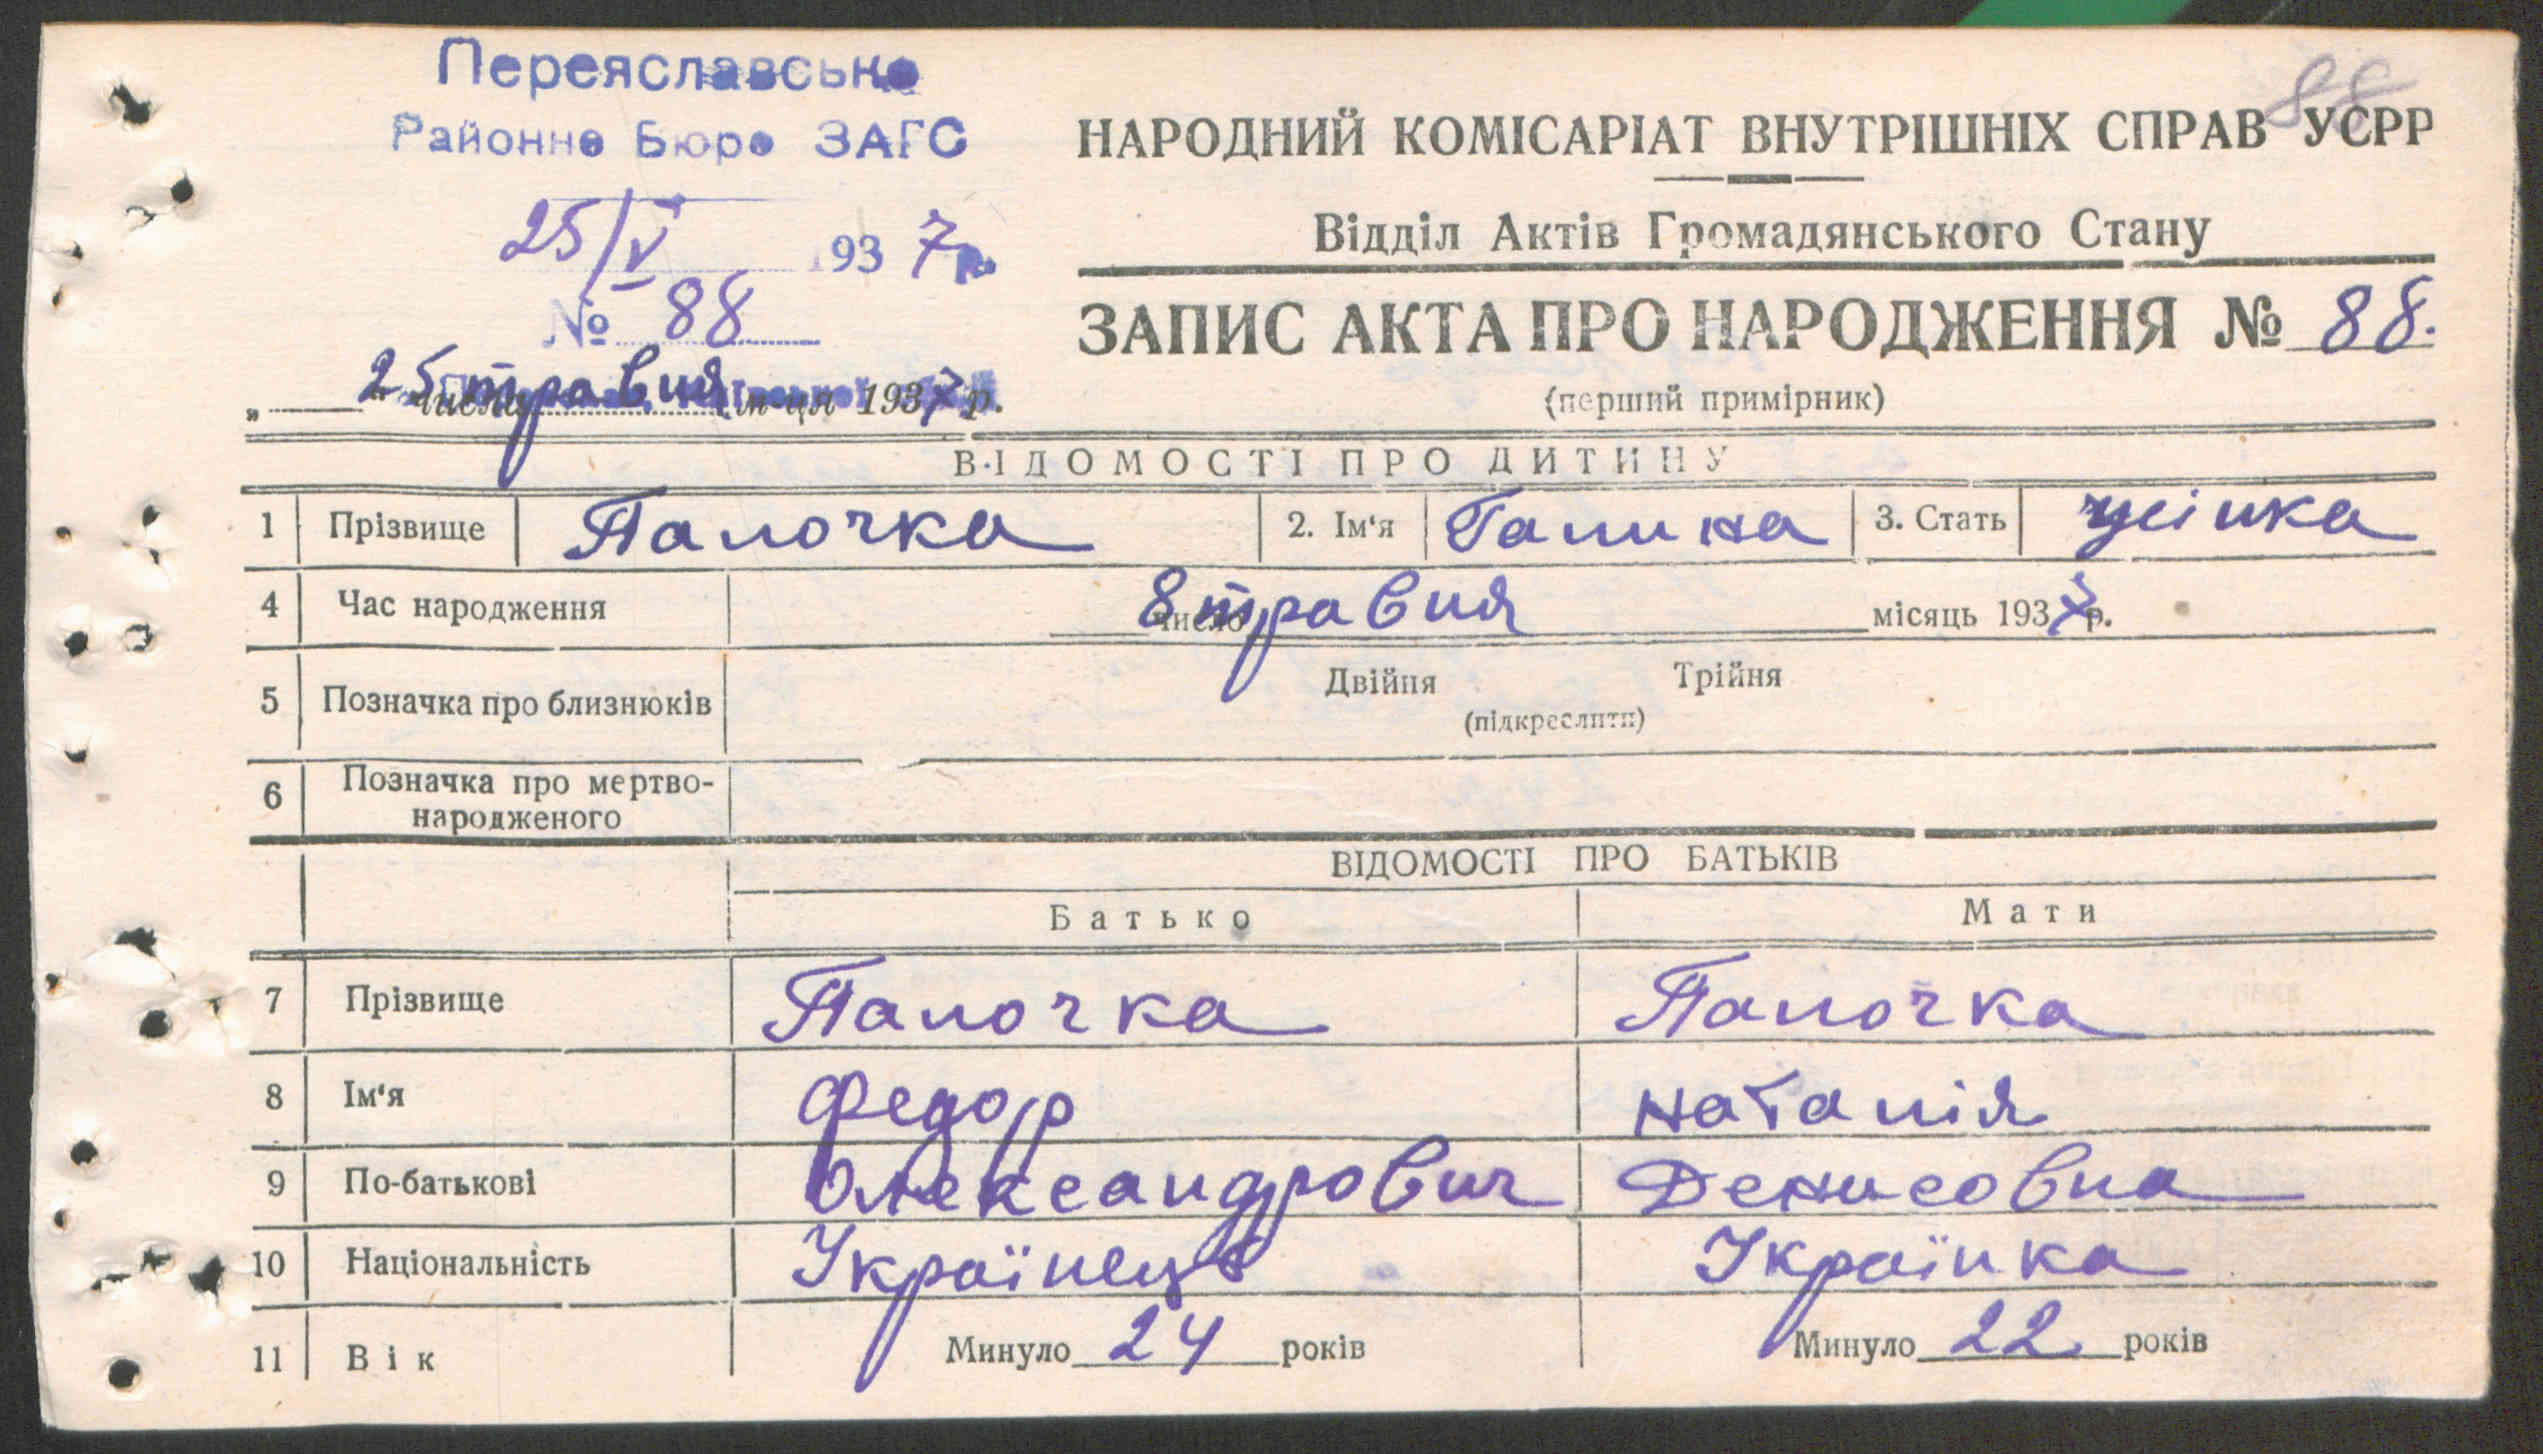 88
Переяславське
Районне Бюро ЗАГС
25/V 1937 р.
№ 88
25 травня 1937 р.
НАРОДНИЙ КОМІСАРІАТ ВНУТРІШНІХ СПРАВ УСРР
Відділ Актів Громадянського Стану
ЗАПИС АКТА ПРО НАРОДЖЕННЯ № 88.
(перший примірник)
ВІДОМОСТІ ПРО ДИТИНУ
1 Прізвище Палочка 2. Ім‘я Галина 3. Стать жінка
4 Час народження 8 число травня місяць 1937 р.
5 Позначка про близнюків Двійня Трійня
(підкреслити)
6 Позначка про мертво-
народженого
ВІДОМОСТІ ПРО БАТЬКІВ
Батько Мати
7 Прізвище Палочка Палочка
8 Ім‘я Федор Наталія
9 По-батькові Олександрович Денисовна
10 Національність Українець Українка
11 Вік Минуло 24 років Минуло 22 років